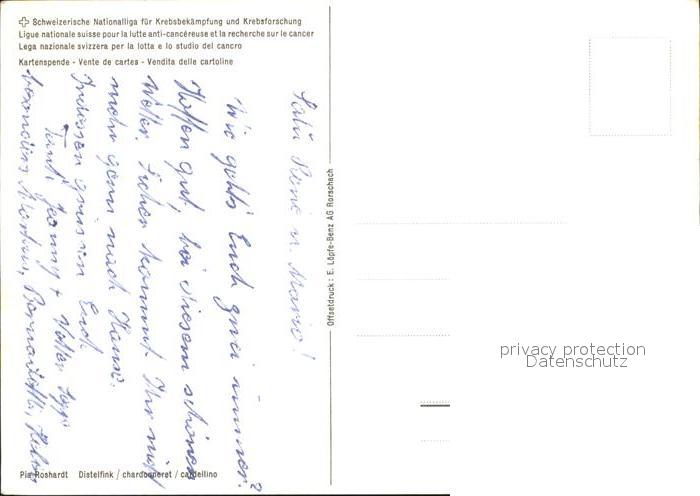 Schweizerische Nationalliga für Krebsbekämpfung und Krebsforschung
Ligue nationale suisse pour la lutte anti-cancéreuse et la recherche sur le cancer
Lega nazionale svizzera per la lotta e lo studio del cancro
Kartenspende - Vente de cartes - Vendita delle cartoline
Salü René u. Mario!
Wie geht's Euch zwei immer?
Hoffen gut, bei diesem schönen
Wetter. Sicher kommt Ihr nicht
mehr gern nach Hause.
Indessen grüssen Euch
Tanti Jeanny + Vetter
Martin, Bernadette,
Pia Roshardt Distelfink / chardonneret / cardellino
Offsetdruck: E. Löpfe-Benz AG Rorschach
privacy protection
Datenschutz